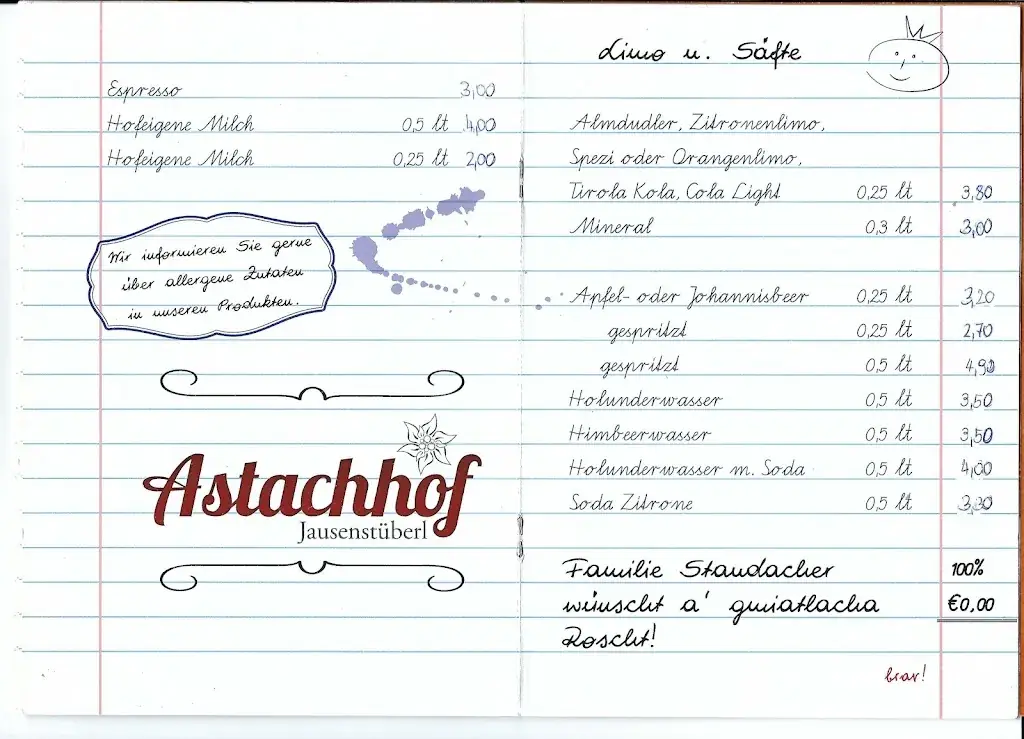 Espresso 3,00
Hofeigene Milch 0,5 lt 4,00
Hofeigene Milch 0,25 lt 2,00
Wir informieren Sie gerne
über allergene Zutaten
in unseren Produkten.
Astachhof
Jausenstüberl
Limo u. Säfte
Almdudler, Zitronenlimo,
Spezi oder Orangenlimo,
Tirola Kola, Cola Light 0,25 lt 3,80
Mineral 0,3 lt 3,00
Apfel- oder Johannisbeer 0,25 lt 3,20
gespritzt 0,25 lt 2,70
gespritzt 0,5 lt 4,90
Holunderwasser 0,5 lt 3,50
Himbeerwasser 0,5 lt 3,50
Holunderwasser m. Soda 0,5 lt 4,00
Soda Zitrone 0,5 lt
Familie Standacher 100%
wünscht a' gmiatlacha €0,00
Roscht!
brav!